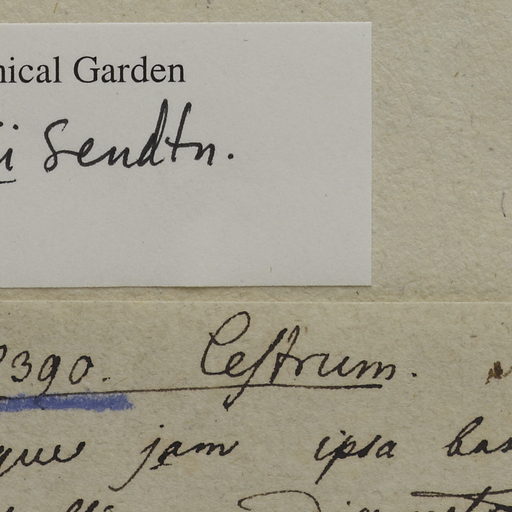 nical Garden
ii Sendtn.
390. Cestrum.
ques jam ipsa bas